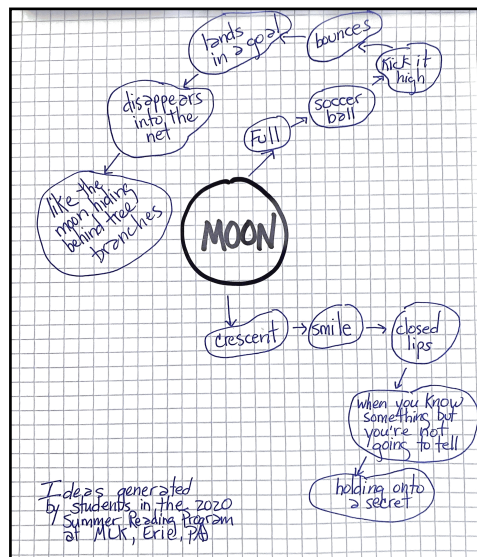 MOON
Full
soccer
ball
Kick it
high
bounces
lands
in a goal
disappears
into the
net
like the
moon hiding
behind tree
branches
crescent
smile
closed
lips
when you know
something but
you're not
going to tell
holding onto
a secret
Ideas generated
by students in the 2020
Summer Reading Program
at MLK, Erie, PA